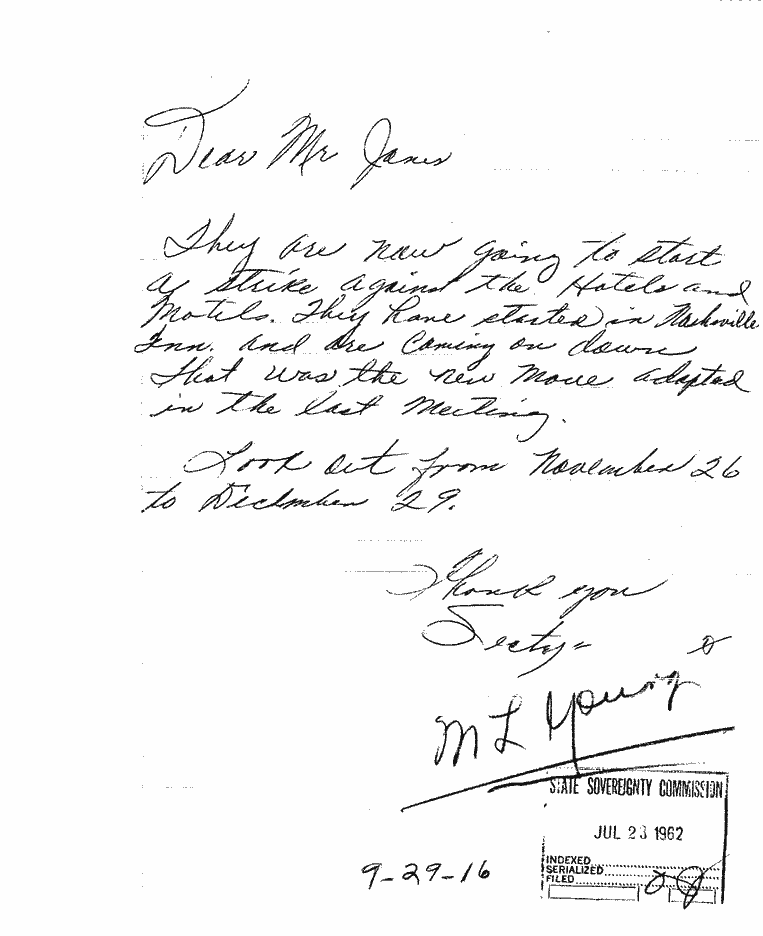 Dear Mr Jones
They are now going to start
a strike against the Hotels and
Motels. They have started in Nashville
Inn. and are coming on down
that was the new move adapted
in the last meeting.
Look out from November 26
to December 29.
Thank you
Secty=
M L Young
STATE SOVEREIGNTY COMMISSION
JUL 23 1962
INDEXED
SERIALIZED
FILED
9-29-16